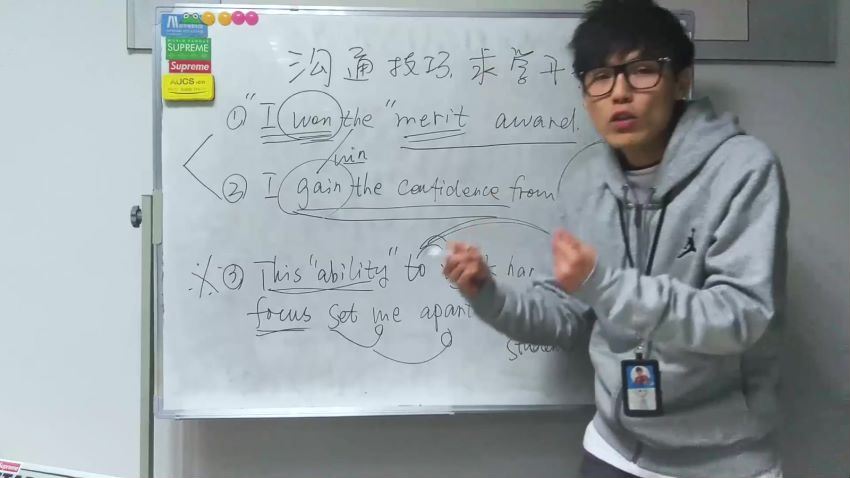 SUPREME
Supreme
AUCS.cn
沟通技巧. 求学开
① "I won the "merit award.
win
② I gain the confidence from
③ This "ability" to
focus set me apart
Supreme